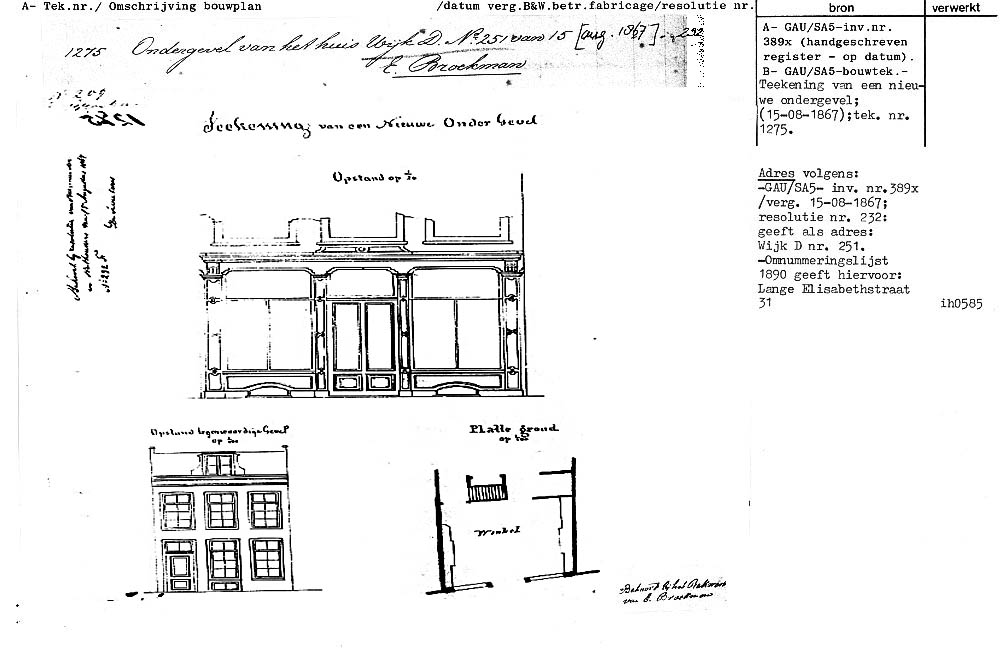 A- Tek.nr./ Omschrijving bouwplan
/datum verg.B&W.betr.fabricage/resolutie nr.
bron
verwerkt
1275 Ondergevel van het huis Wijk D. No. 251 van 15 [aug. 1867]. 232
E. Brockman
209
1275
Teekening van een Nieuwe Onder Gevel
Opstand op 1/20
No 232
Opstand tegenwoordige Gevel
op
Platte grond
op
Winkel
Behoord bij het Rekwest
van E. Brockman
A- GAU/SA5-inv.nr.
389x (handgeschreven
register - op datum).
B- GAU/SA5-bouwtek.-
Teekening van een nieu-
we ondergevel;
(15-08-1867);tek. nr.
1275.
Adres volgens:
-GAU/SA5- inv. nr.389x
/verg. 15-08-1867;
resolutie nr. 232:
geeft als adres:
Wijk D nr. 251.
-Omnummeringslijst
1890 geeft hiervoor:
Lange Elisabethstraat
31
ih0585